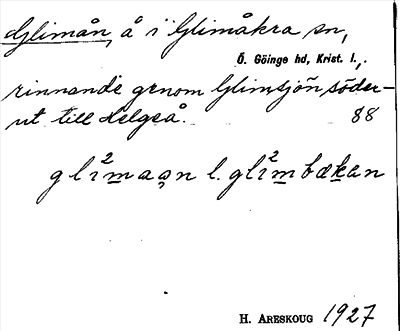 Glimån, å i Glimåkra sn,
Ö. Göinge hd, Krist. l.,
rinnande genom Glimsjön söder-
ut till Helgeå. 88
glı²maa̧n l. glı²mbækan
H. ARESKOUG 1927